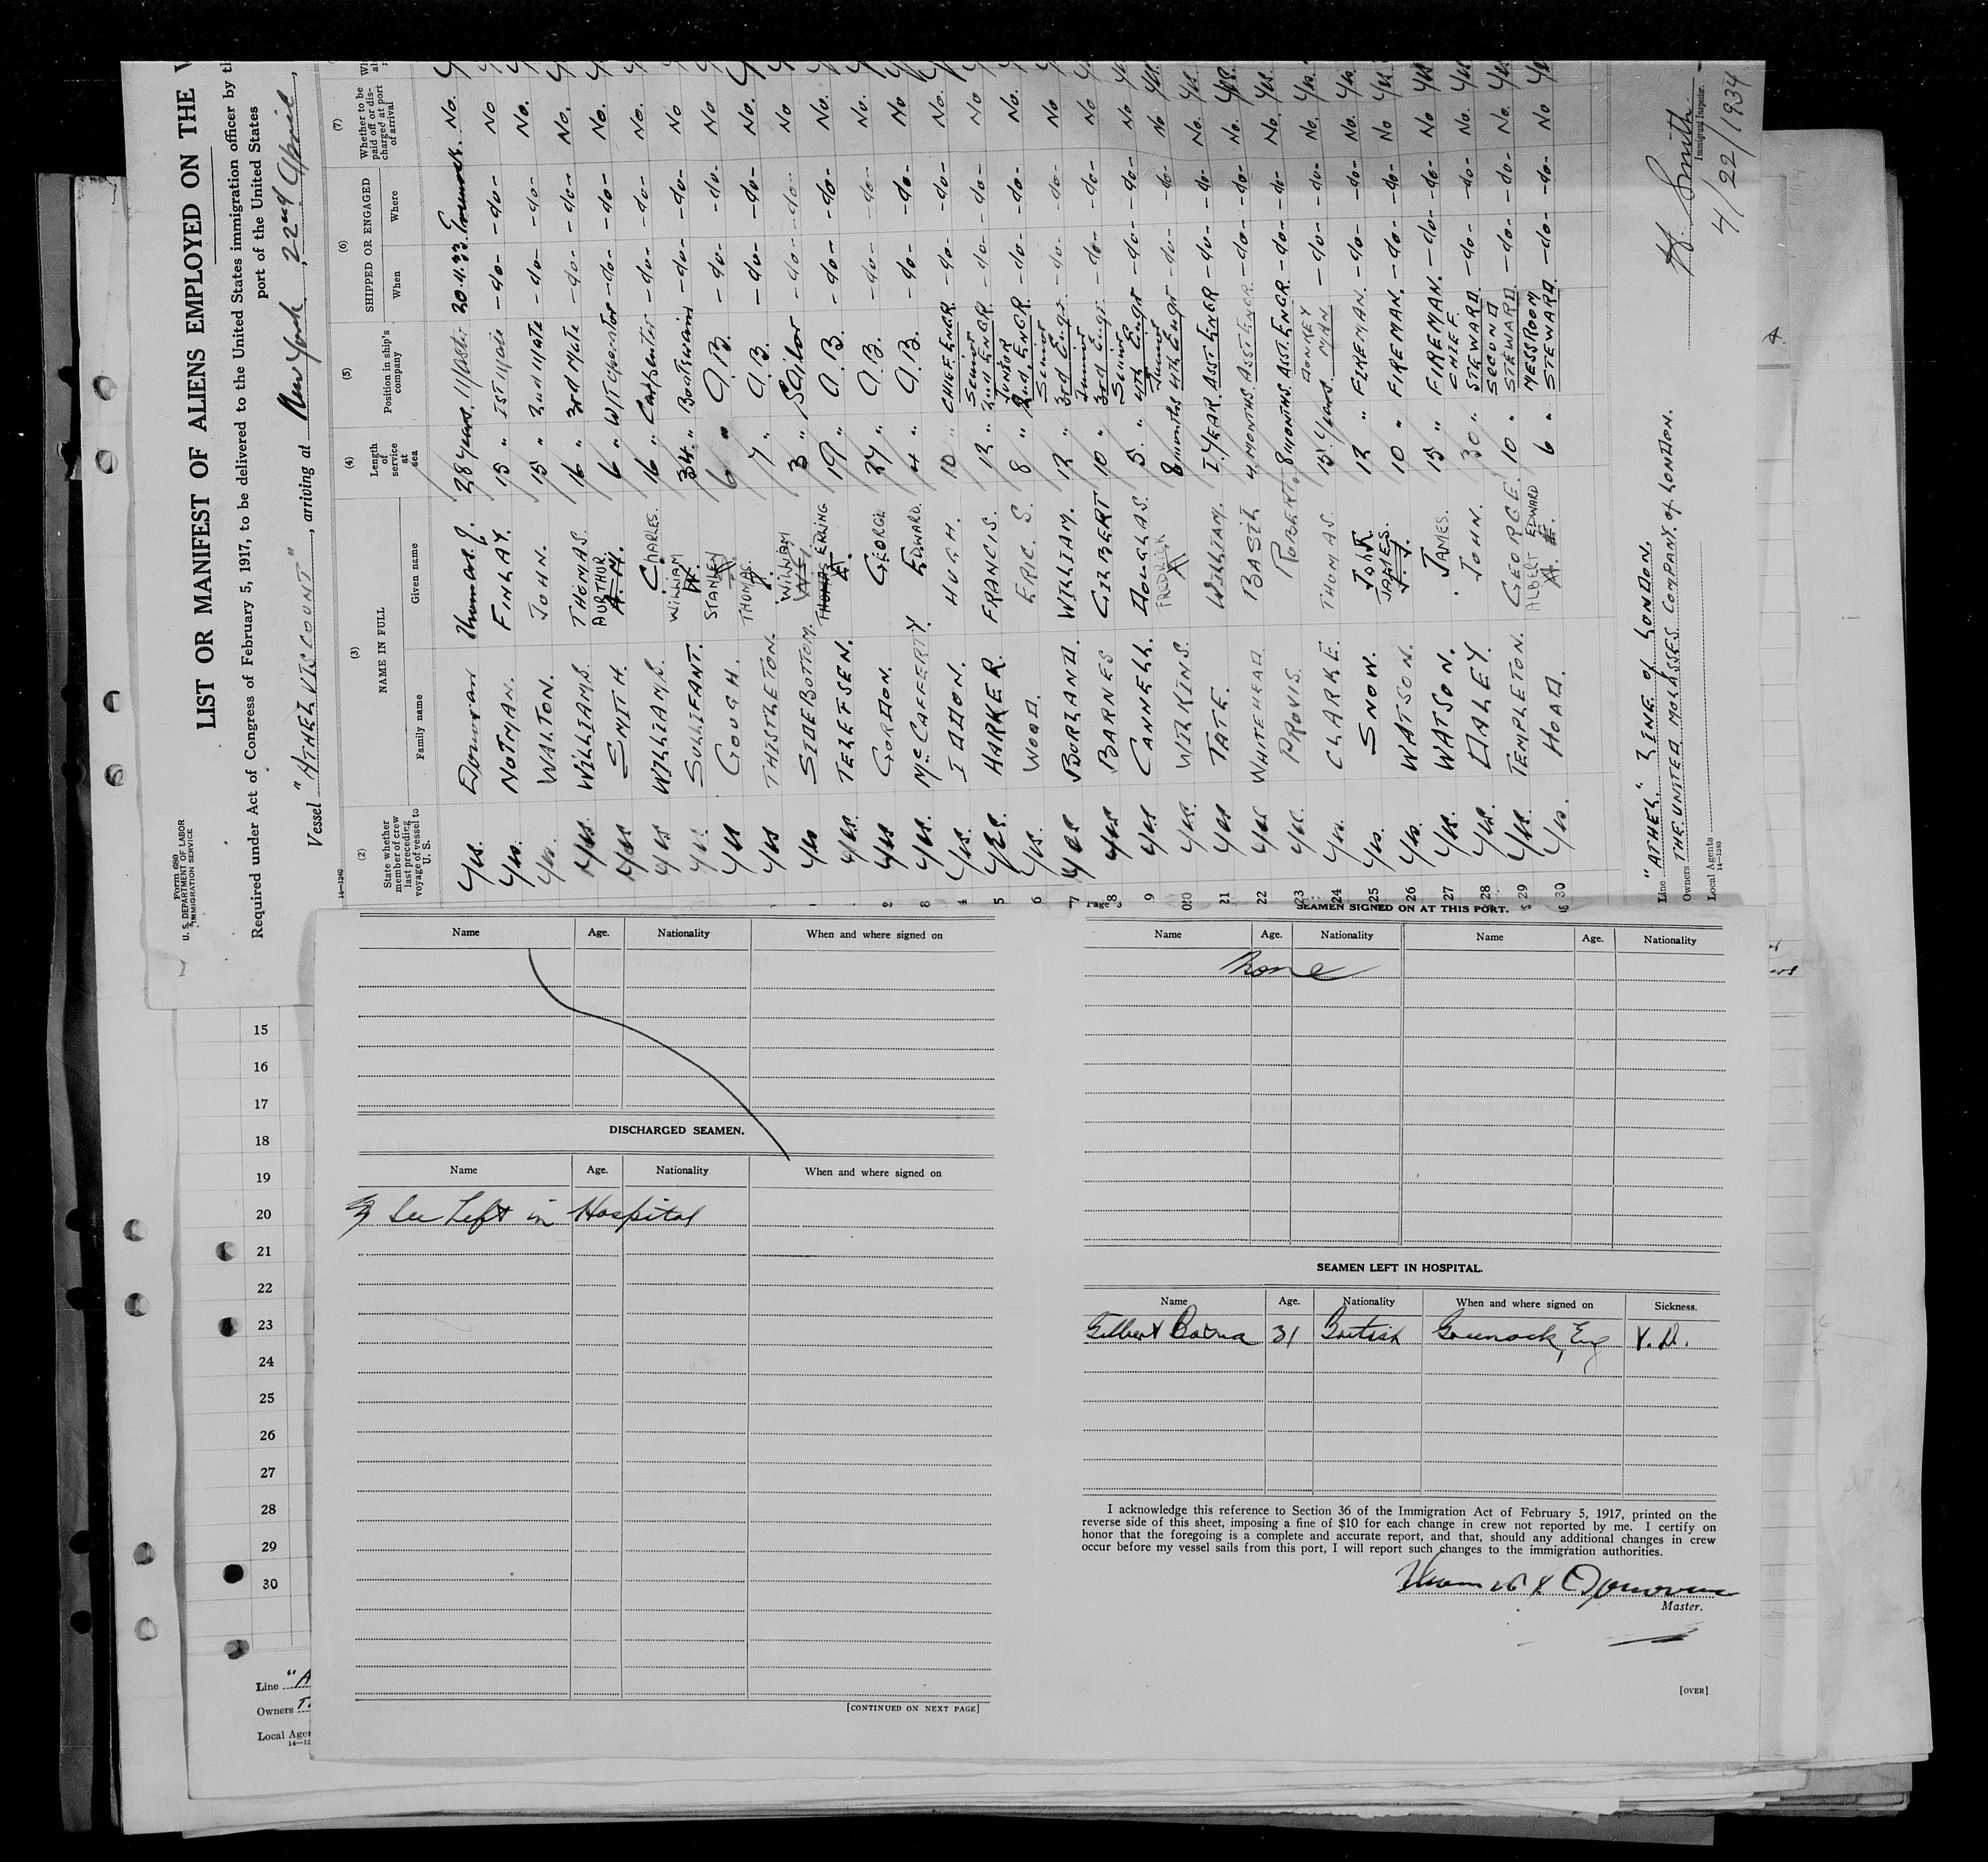 Form 680
U. S. DEPARTMENT OF LABOR
IMMIGRATION SERVICE
LIST OR MANIFEST OF ALIENS EMPLOYED ON THE
Required under Act of Congress of February 5, 1917, to be delivered to the United States immigration officer by th
port of the United States
Vessel "ATHELVISCOUNT", arriving at New York, 22nd April,
14—1240
(2) (3) (4) (5) (6) (7)
State whether member of crew last preceding voyage of vessel to U. S.
NAME IN FULL
Family name Given name
Length of service at sea
Position in ship's company
SHIPPED OR ENGAGED
When Where
Whether to be paid off or discharged at port of arrival
Yes. Donovan Thomas J. 28 years. Master 30.11.33. Greenock. No.
Yes. NOTMAN. FINLAY. 15 " 1ST Mate -do- -do- No
Yes. WALTON. JOHN. 15 " 2nd Mate -do- -do- No.
Yes WILLIAMS. THOMAS. 16 " 3rd Mate -do- -do- No.
Yes SMITH. AURTHUR 6 " W/T Operator -do- -do- No.
Yes WILLIAMS. CHARLES. 16 " Carpenter -do- -do- No.
Yes. SULLIFANT. WILLIAM 34. " Boatswain -do- -do- No
Yes GOUGH. STANLEY 6 " A.B. -do- -do- No
Yes THISTLETON. THOMAS. 7 " A.B. -do- -do- No.
Yes SIDEBOTTOM. WILLIAM 3 " Sailor -do- -do- No
Yes. TELEFSEN. THOMAS ERLING 19 " A.B. -do- -do- No.
Yes GORDON. GEORGE 27 " A.B. -do- -do- No.
Yes. McCAFFERTY. EDWARD. 4 " A.B. -do- -do- No
4 Yes. IDDON. HUGH. 10 " CHIEF ENGR -do- -do- No.
5 YES. HARKER. FRANCIS. 12 " Senior 2nd ENGR -do- -do- No
6 Yes. WOOD. ERIC S. 8 " JUNIOR 2nd. ENGR -do- -do- No.
7 Yes BORLAND. WILLIAM. 12 " Senior 3rd Engr -do- -do- No
8 Yes BARNES GILBERT 10 " Junior 3rd Engr -do- -do- No
9 Yes CANNELL. DOUGLAS. 5. " Senior 4th Engr -do- -do- No Yes
20 Yes. WILKINS. FREDRICK 8 months Junior 4th Engr -do- -do- No Yes.
21 Yes TATE. WILLIAM. 1 YEAR. ASST ENGR -do- -do- No. Yes.
22 Yes WHITEHEAD. BASIL 4 MONTHS ASST ENGR -do- -do- No. Yes.
23 Yes. PROVIS. ROBERT. 8 MONTHS. ASST. ENGR -do- -do- No. Yes.
24 Yes. CLARKE. THOMAS. 15 Years. DONKEY MAN -do- -do- No. Yes.
25 Yes. SNOW. JOHN. 12 " FIREMAN. -do- -do- No. Yes.
26 Yes. WATSON. JAMES 10 " FIREMAN. -do- -do- No Yes
27 Yes. WATSON. JAMES. 15 " FIREMAN. -do- -do- No Yes
28 Yes. DALEY. JOHN. 30 " CHIEF STEWARD -do- -do- No. Yes
29 Yes. TEMPLETON. GEORGE. 10 " SECOND STEWARD. -do- -do- No. Yes
30 Yes. HOAD. ALBERT EDWARD 6 " MESSROOM STEWARD. -do- -do- No
Line "ATHEL" LINE of LONDON.
Owners THE UNITED MOLASSES COMPANY of LONDON.
Local Agents
14—1240
H Smith
Immigrant Inspector.
4/22/1934
15
16
17
18
19
20
21
22
23
24
25
26
27
28
29
30
Line "A
Owners T
Local Age
Name Age. Nationality When and where signed on
DISCHARGED SEAMEN.
Name Age. Nationality When and where signed on
See Left in Hospital
[CONTINUED ON NEXT PAGE]
Page
SEAMEN SIGNED ON AT THIS PORT.
Name Age. Nationality Name Age. Nationality
None
SEAMEN LEFT IN HOSPITAL.
Name Age. Nationality When and where signed on Sickness.
Gilbert 31 British Greenock, Eng V.D.
I acknowledge this reference to Section 36 of the Immigration Act of February 5, 1917, printed on the
reverse side of this sheet, imposing a fine of $10 for each change in crew not reported by me. I certify on
honor that the foregoing is a complete and accurate report, and that, should any additional changes in crew
occur before my vessel sails from this port, I will report such changes to the immigration authorities.
Thomas J Donovan
Master.
[OVER]